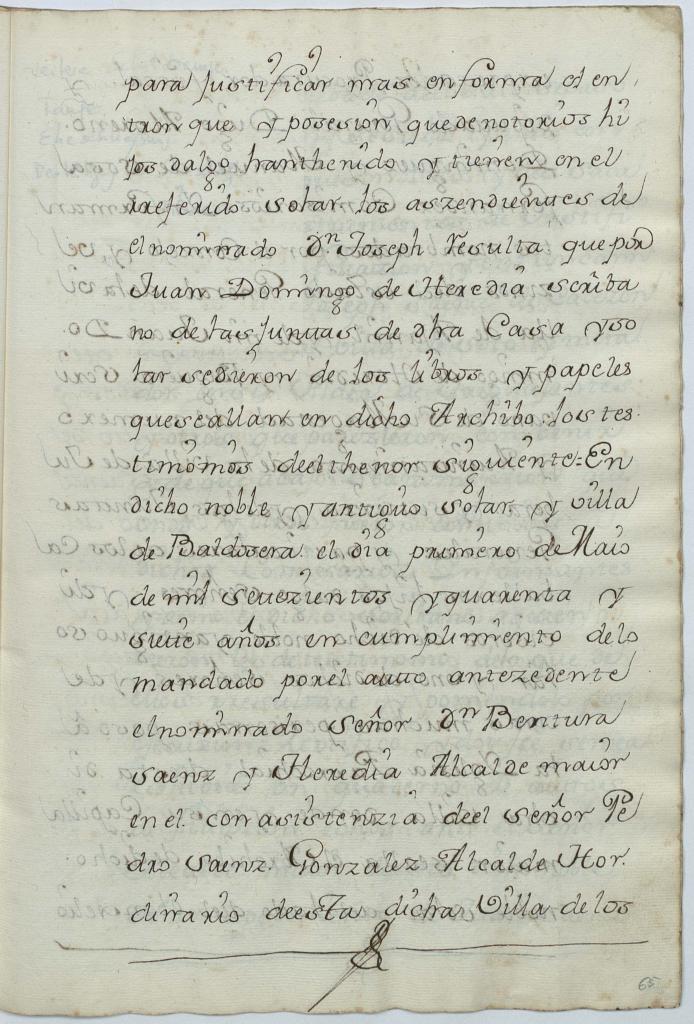 para Justificar mas en forma el en
tronque y posesion que de notorios hi
jos dalgo han thenido y tienen en el
rreferido solar los aszendientes de
el nominado Dn. Joseph resulta que por
Juan Domingo de Heredia escriba
no de las Juntas de dha Casa y so
lar se dieron de los libros y papeles
que se allan en dicho Archibo los tes
timonios de el thenor siguiente = En
dicho noble y antiguo solar y villa
de Baldosera el dia primero de Maio
de mil setezientos y quarenta y
siete años en cumplimiento de lo
mandado por el auto antezedente
el nominado señor Dn Bentura
saenz y Heredia Alcalde maior
en el con asistenzia de el señor Pe
dro saenz Gonzalez Alcalde Hor
dinario de esta dicha Villa de los
65